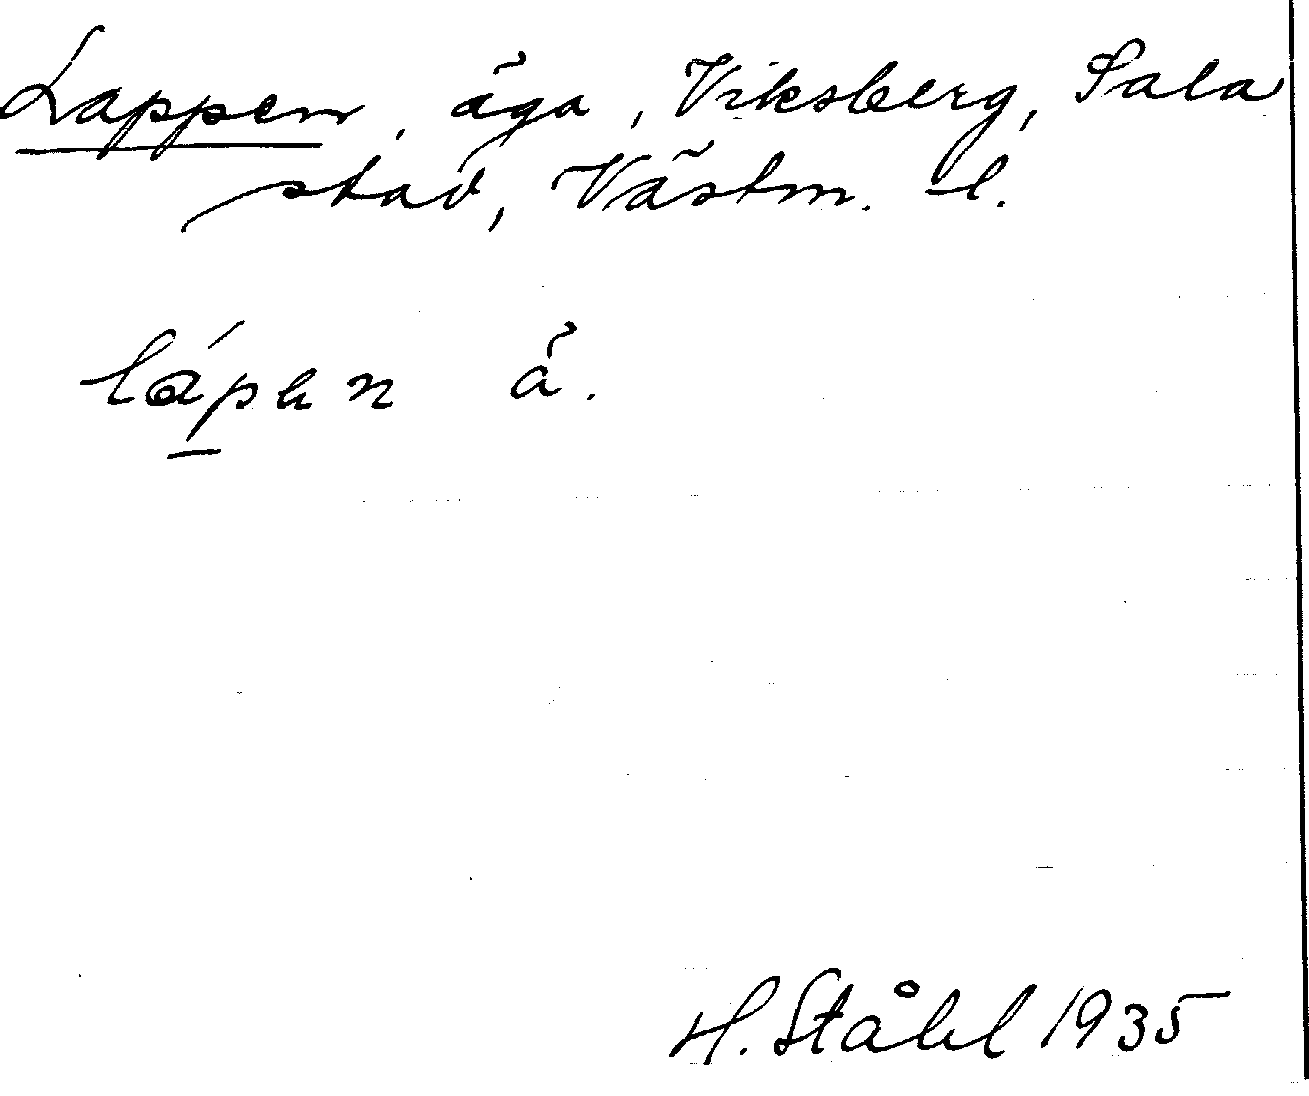 Lappen, åga, Viksberg, Sala
stad, Västm. l.
lápen å.
H. Ståhl 1935